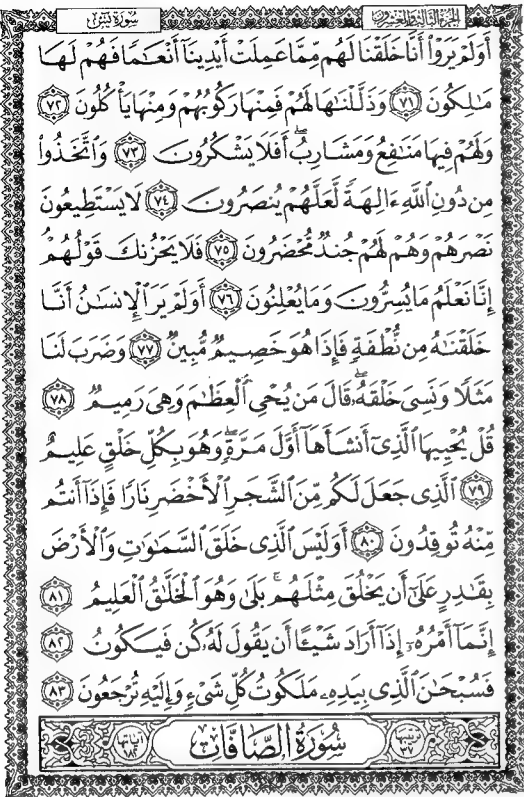 سُورَةُ يسٓ
الجزء الثالث والعشرون
أَوَلَمْ يَرَوْا۟ أَنَّا خَلَقْنَا لَهُم مِّمَّا عَمِلَتْ أَيْدِينَآ أَنْعَٰمًا فَهُمْ لَهَا
مَٰلِكُونَ ٧١ وَذَلَّلْنَٰهَا لَهُمْ فَمِنْهَا رَكُوبُهُمْ وَمِنْهَا يَأْكُلُونَ ٧٢
وَلَهُمْ فِيهَا مَنَٰفِعُ وَمَشَارِبُ ۖ أَفَلَا يَشْكُرُونَ ٧٣ وَٱتَّخَذُوا۟
مِن دُونِ ٱللَّهِ ءَالِهَةً لَّعَلَّهُمْ يُنصَرُونَ ٧٤ لَا يَسْتَطِيعُونَ
نَصْرَهُمْ وَهُمْ لَهُمْ جُندٌ مُّحْضَرُونَ ٧٥ فَلَا يَحْزُنكَ قَوْلُهُمْ ۘ
إِنَّا نَعْلَمُ مَا يُسِرُّونَ وَمَا يُعْلِنُونَ ٧٦ أَوَلَمْ يَرَ ٱلْإِنسَٰنُ أَنَّا
خَلَقْنَٰهُ مِن نُّطْفَةٍ فَإِذَا هُوَ خَصِيمٌ مُّبِينٌ ٧٧ وَضَرَبَ لَنَا
مَثَلًا وَنَسِىَ خَلْقَهُۥ ۖ قَالَ مَن يُحْىِ ٱلْعِظَٰمَ وَهِىَ رَمِيمٌ ٧٨
قُلْ يُحْيِيهَا ٱلَّذِىٓ أَنشَأَهَآ أَوَّلَ مَرَّةٍ ۖ وَهُوَ بِكُلِّ خَلْقٍ عَلِيمٌ
٧٩ ٱلَّذِى جَعَلَ لَكُم مِّنَ ٱلشَّجَرِ ٱلْأَخْضَرِ نَارًا فَإِذَآ أَنتُم
مِّنْهُ تُوقِدُونَ ٨٠ أَوَلَيْسَ ٱلَّذِى خَلَقَ ٱلسَّمَٰوَٰتِ وَٱلْأَرْضَ
بِقَٰدِرٍ عَلَىٰٓ أَن يَخْلُقَ مِثْلَهُم ۚ بَلَىٰ وَهُوَ ٱلْخَلَّٰقُ ٱلْعَلِيمُ ٨١
إِنَّمَآ أَمْرُهُۥٓ إِذَآ أَرَادَ شَيْـًٔا أَن يَقُولَ لَهُۥ كُن فَيَكُونُ ٨٢
فَسُبْحَٰنَ ٱلَّذِى بِيَدِهِۦ مَلَكُوتُ كُلِّ شَىْءٍ وَإِلَيْهِ تُرْجَعُونَ ٨٣
ترتيبها ٣٧
سُورَةُ الصَّافَّاتِ
آياتها ١٨٢